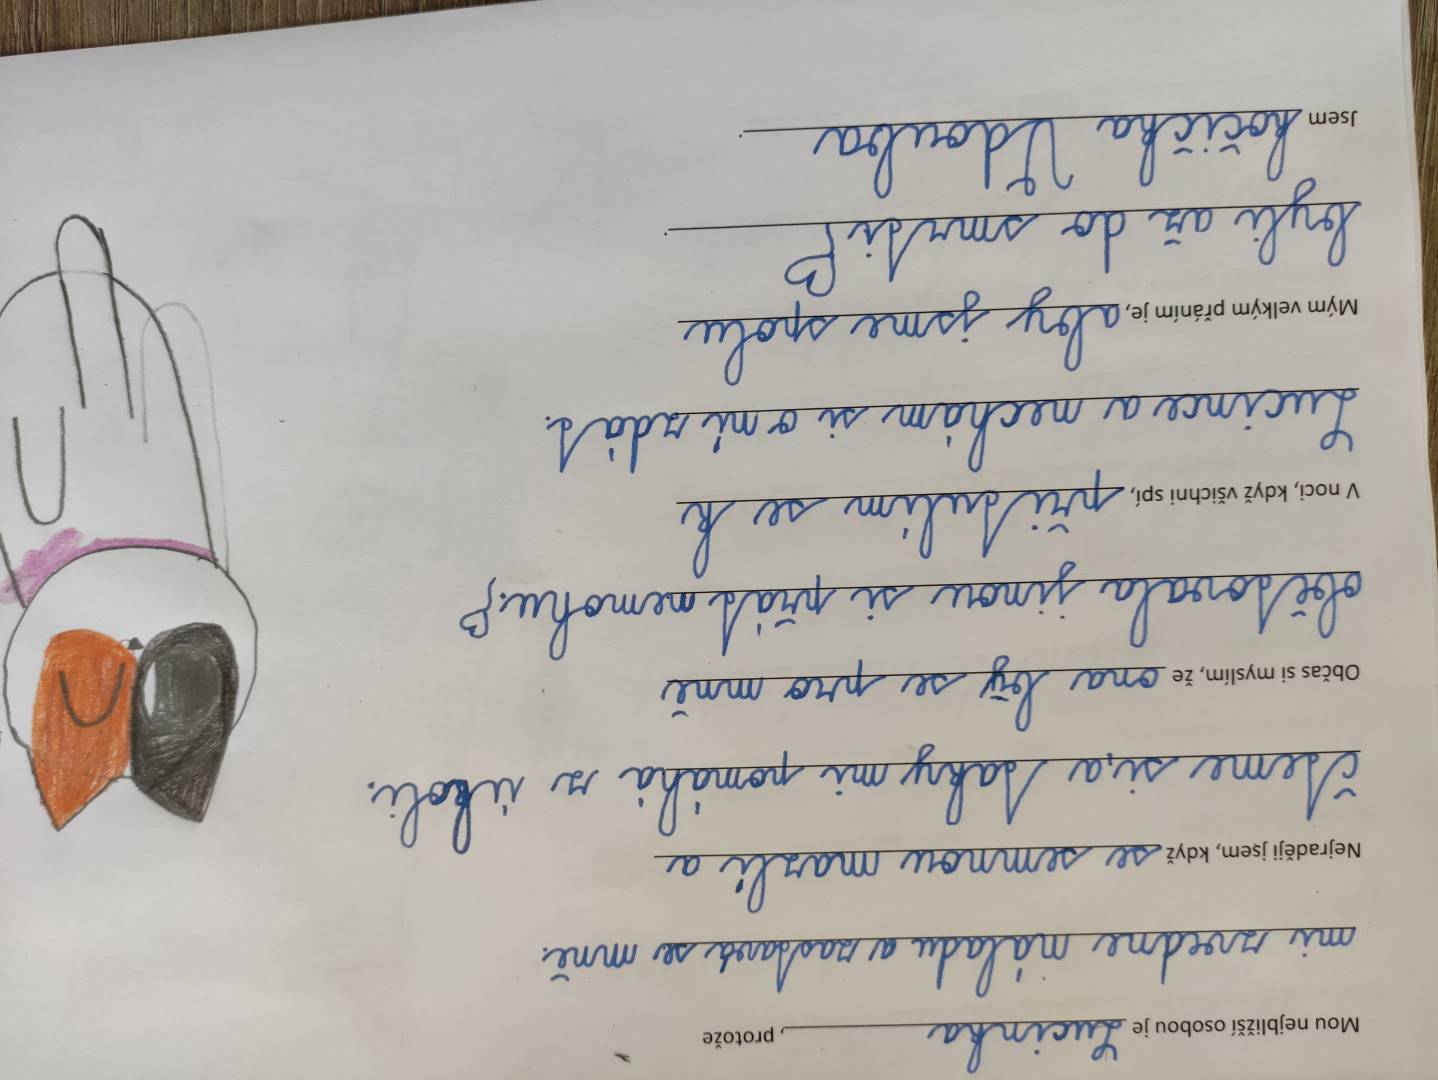 Mou nejbližší osobou je Lucinka, protože
mi zvedne náladu a zastavá se mně.
Nejraději jsem, když se semnou mazlí a
čteme si, a taky mi pomáhá z úkoli.
Občas si myslím, že ona bý se pro mně
obětovala jinou si přát nemohu.
V noci, když všichni spí, přitulim se k
Lucince a nechám si o ní zdát.
Mým velkým přáním je, aby jsme spolu
byli až do smrti
Jsem kočička Vdouba.